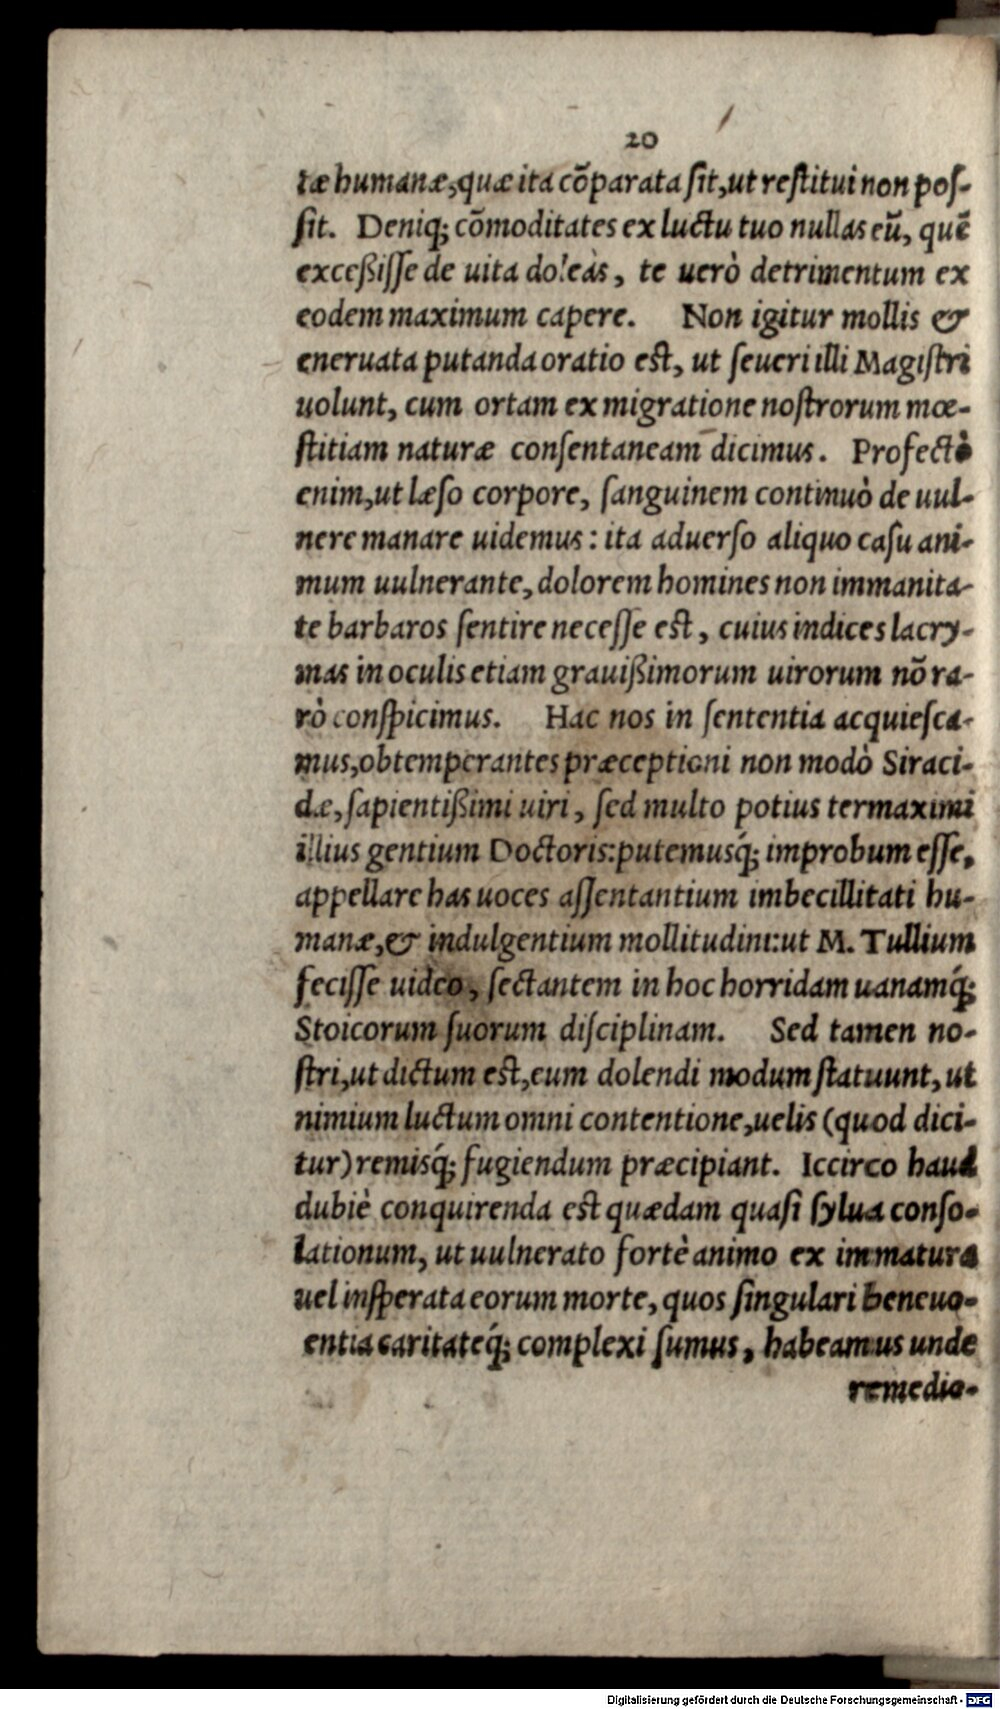 20
tæ humanæ, quæ ita cõparata ſit, ut reſtitui non poſ-
ſit. Deniq́; cõmoditates ex luctu tuo nullas eũ, quẽ
exceßiſſe de uita doleàs, te uerò detrimentum ex
eodem maximum capere. Non igitur mollis &
eneruata putanda oratio eſt, ut ſeueri illi Magiſtri
uolunt, cum ortam ex migratione noſtrorum mœ-
ſtitiam naturæ conſentaneam dicimus. Profectò
enim, ut læſo corpore, ſanguinem continuò de uul-
nere manare uidemus: ita aduerſo aliquo caſu ani-
mum uulnerante, dolorem homines non immanita-
te barbaros ſentire neceſſe eſt, cuius indices lacry-
mas in oculis etiam grauißimorum uirorum nõ ra-
rò conſpicimus. Hac nos in ſententia acquieſca-
mus, obtemperantes præceptioni non modò Siraci-
dæ, ſapientißimi uiri, ſed multo potius termaximi
illius gentium Doctoris: putemusq́; improbum eſſe,
appellare has uoces aſſentantium imbecillitati hu-
manæ, & indulgentium mollitudini: ut M. Tullium
feciſſe uideo, ſectantem in hoc horridam uanamq́;
Stoicorum ſuorum diſciplinam. Sed tamen no-
ſtri, ut dictum eſt, cum dolendi modum ſtatuunt, ut
nimium luctum omni contentione, uelis (quod dici-
tur) remisq́; fugiendum præcipiant. Iccirco haud
dubiè conquirenda eſt quædam quaſi ſylua conſo-
lationum, ut uulnerato fortè animo ex immatura
uel inſperata eorum morte, quos ſingulari beneuo-
entia caritateq́; complexi ſumus, habeamus unde
remedio-
Digitalisierung gefördert durch die Deutsche Forschungsgemeinschaft - DFG